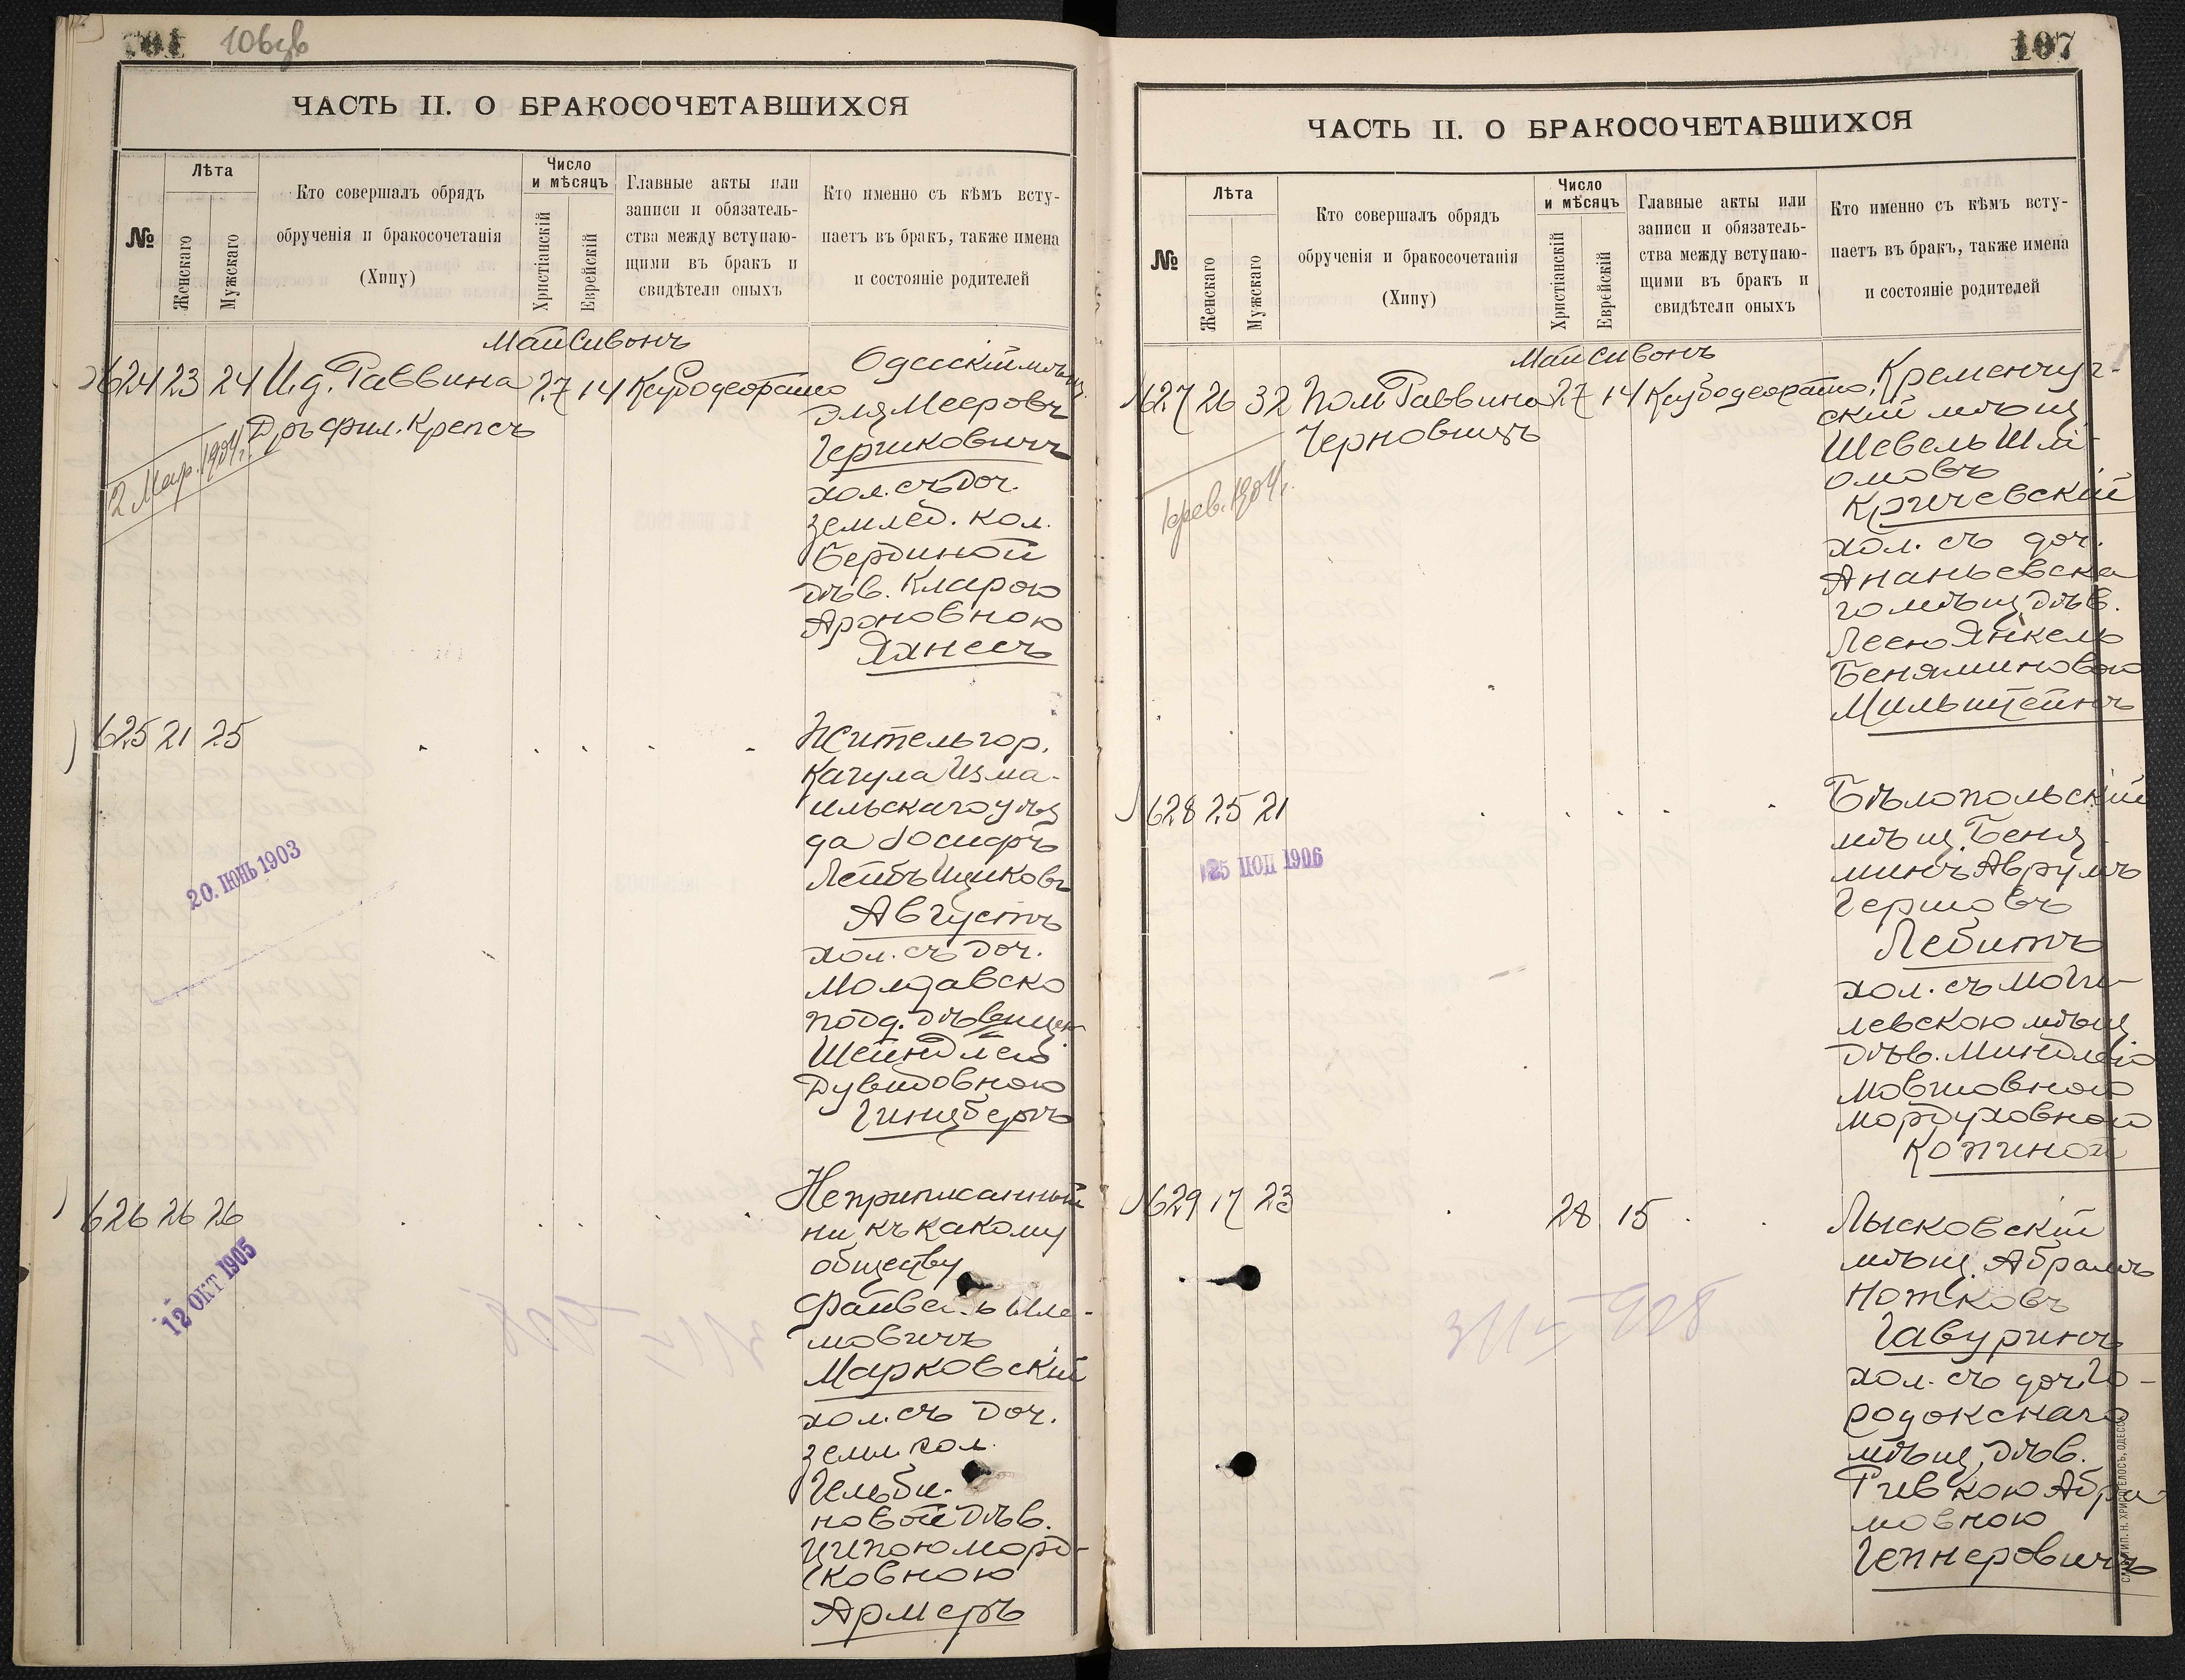 106 об
ЧАСТЬ II. О БРАКОСОЧЕТАВШИХСЯ
№
Лѣта
Женскаго
Мужскаго
Кто совершалъ обрядъ
обрученія и бракосочетанія
(Хипу)
Число
и мѣсяцъ
Христіанскій
Еврейскій
Главные акты или
записи и обязатель-
ства между вступаю-
щими въ бракъ и
свидѣтели оныхъ
Кто именно съ кѣмъ всту-
паетъ въ бракъ, также имена
и состояніе родителей
Май Сивонъ
624 23 24 И.д. Раввина 27 14
Дръ Фил. Крепсъ
12 Мар. 1904 г.
Одесскій мѣщ.
Эля Мееровъ
Гершковичъ
хол. съ доч.
землед. кол.
Бердиной
дѣв. Кларою
Ароновною
Яхнесъ
625 21 25
20. ІЮНЬ 1903
Житель гор.
Кагула Изма-
ильскаго уѣз
да Іосифъ
Лейбъ Ицковъ
Августъ
хол. съ доч.
Молдавско
подд. дѣвицею
Шейндлею
Дувидовною
Гинцбергъ
626 26 26
12 ОКТ 1905
Неприписанный
ни къ какому
обществу
Файвель Шле-
мовичъ
Марковскій
хол. съ доч.
земл. кол.
Гельби-
новой дѣв.
Ципою Морд-
ковною
Армеръ
107
ЧАСТЬ II. О БРАКОСОЧЕТАВШИХСЯ
№
Лѣта
Женскаго
Мужскаго
Кто совершалъ обрядъ
обрученія и бракосочетанія
(Хипу)
Число
и мѣсяцъ
Христіанскій
Еврейскій
Главные акты или
записи и обязатель-
ства между вступаю-
щими въ бракъ и
свидѣтели оныхъ
Кто именно съ кѣмъ всту-
паетъ въ бракъ, также имена
и состояніе родителей
Май Сивонъ
627 26 32 Пом. Раввина 27 14
Черновицъ
1 фев. 1904 г.
Кременчуг-
скій мѣщ
Шевель Шлі-
омовъ
Кричевскій
хол. съ доч.
Ананьевска
го мѣщ. дѣв.
Леею Янкель
Беняминовою
Мильштейнъ
628 25 21
25 ІЮЛ 1906
Бѣлопольскій
мѣщ. Беня-
минъ Аврумъ
Гершовъ
Лебитъ
хол. съ Моги-
левскою мѣщ
дѣв. Миндлею
Мовшовною
Мордуховною
Копиной
629 17 23 28 15
Лысковскій
мѣщ. Абрамъ
Нотковъ
Гавуринъ
хол. съ доч. Го-
родокскаго
мѣщ. дѣв.
Ривкою Абра-
мовною
Гепнеровичъ